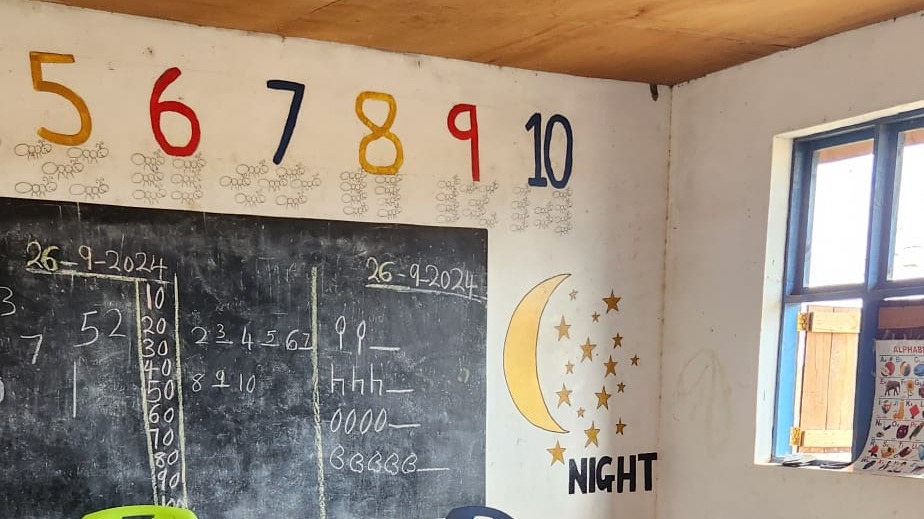 5 6 7 8 9 10
26-9-2024
26-9-2024
3
7
52
10
20
30
40
50
60
70
80
90
2 3 4 5 6 7
8 9 10
NIGHT
ALPHAB